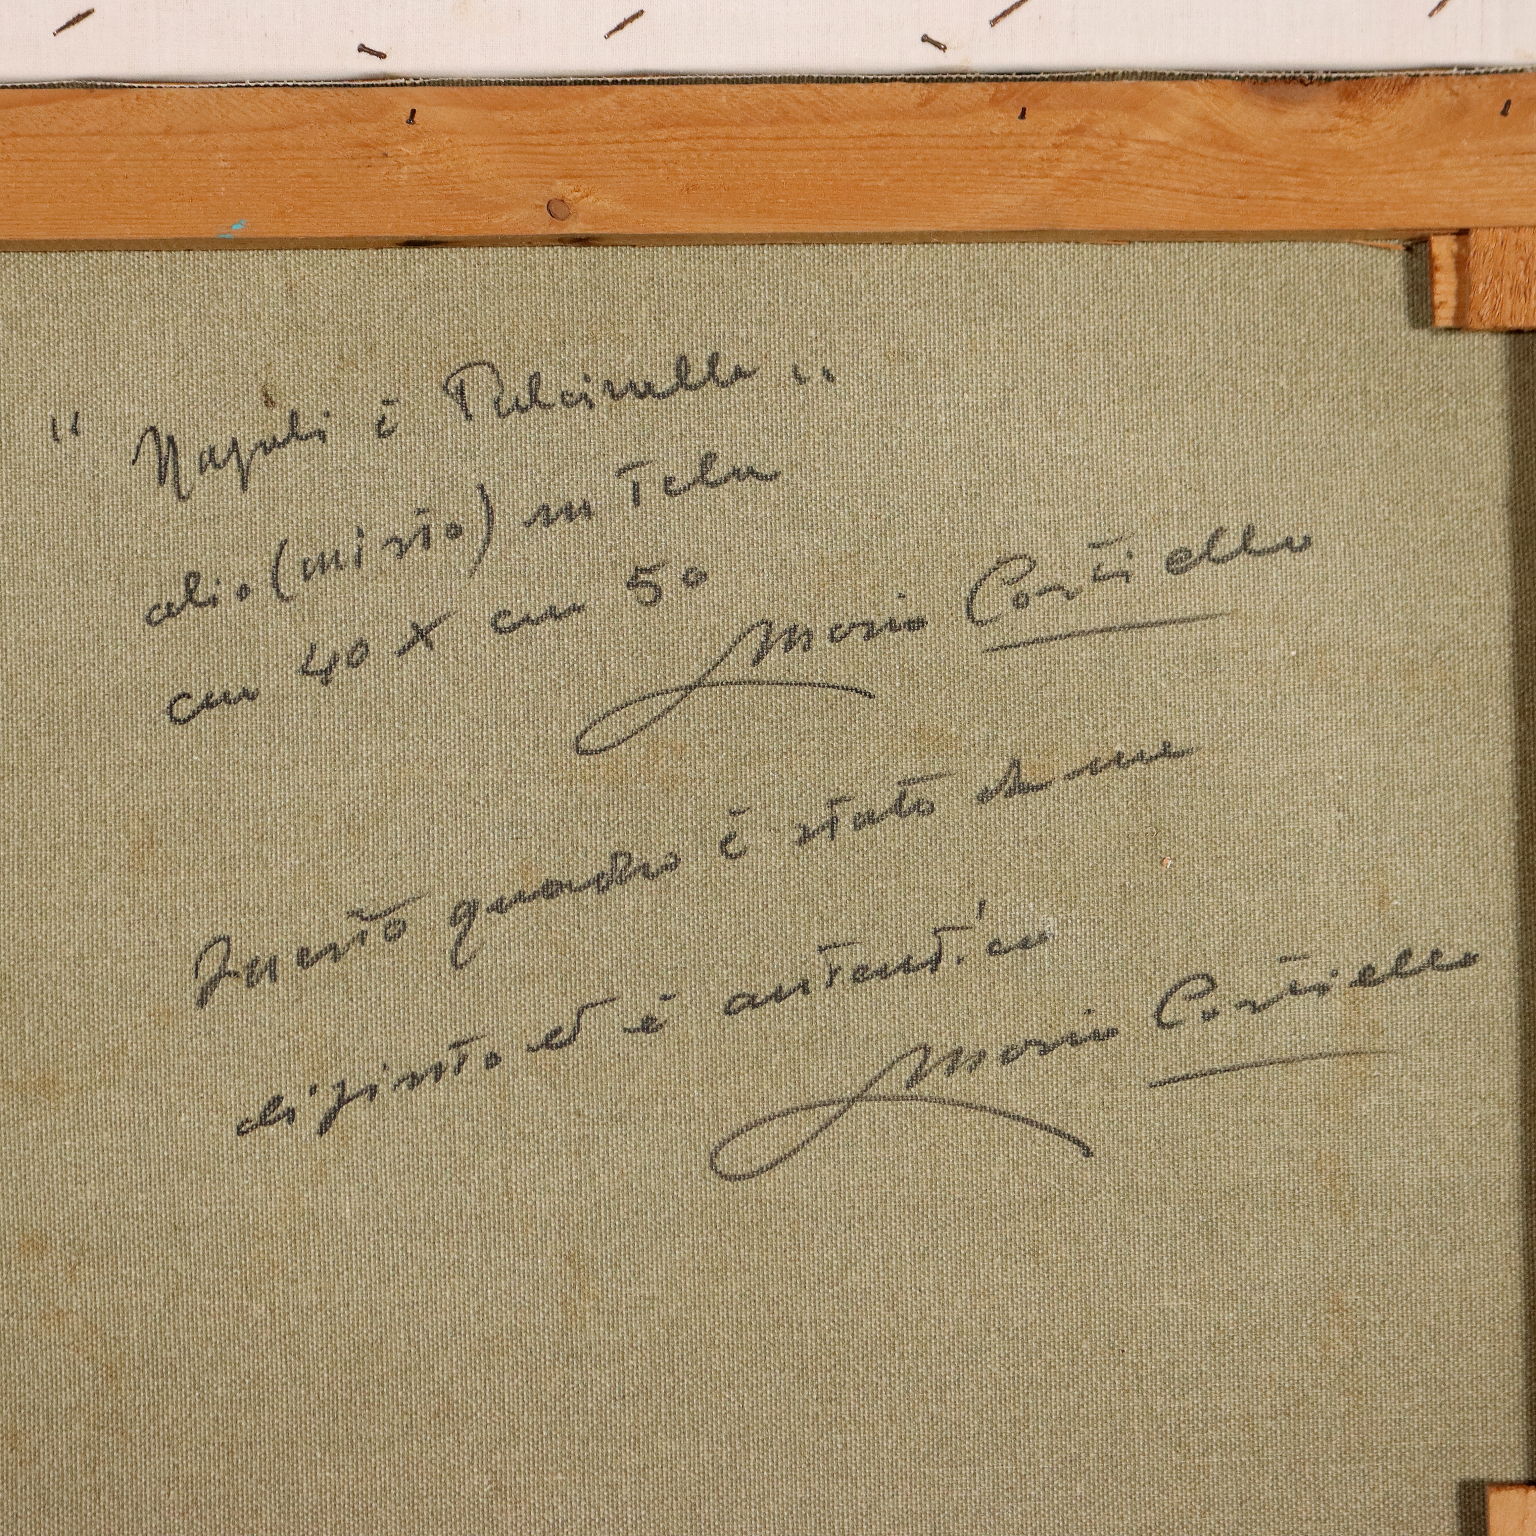 " Napoli è Pulcinella "
olio (misto) su Tela
cm 40 x cm 50
Mario Cortiello
Questo quadro è stato da me
dipinto ed è autentico
Mario Cortiello